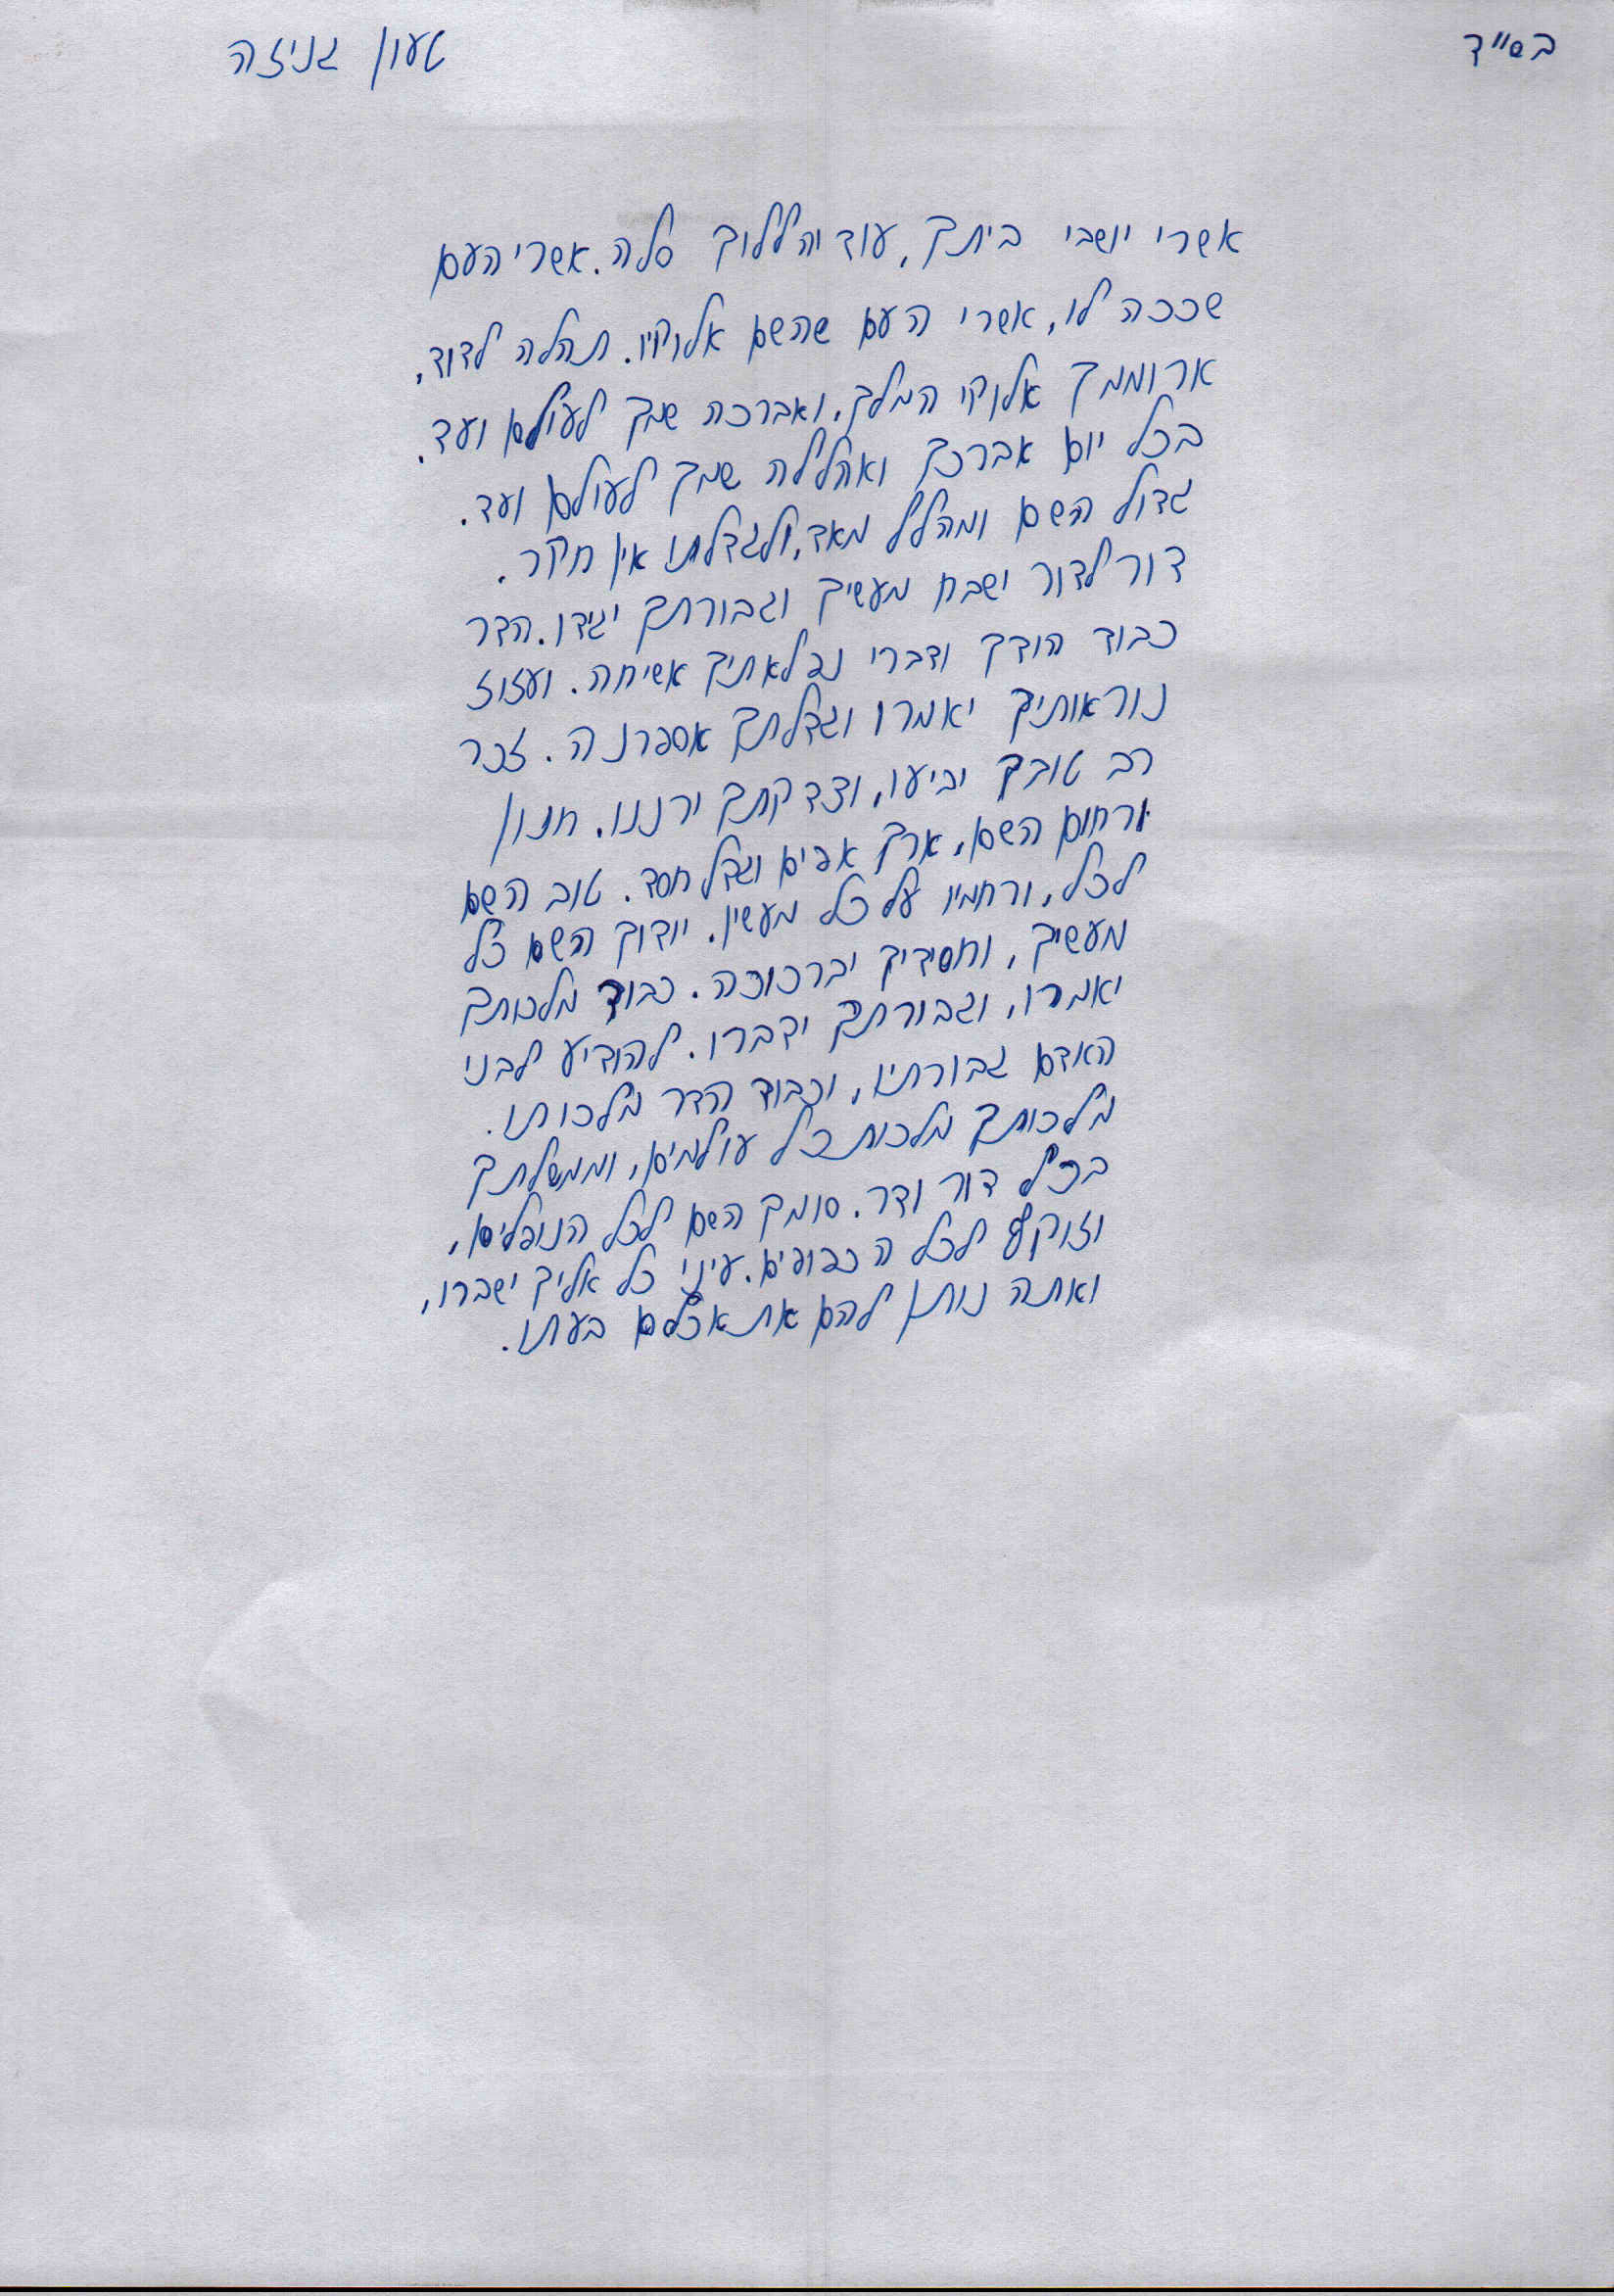 בס"ד
טעון גניזה
אשרי יושבי ביתך, עוד יהללוך סלה. אשרי העם
שככה לו, אשרי העם שהשם אלוקיו. תהלה לדוד,
ארוממך אלוקי המלך, ואברכה שמך לעולם ועד.
בכל יום אברכך ואהללה שמך לעולם ועד.
גדול השם ומהלל מאד, ולגדלתו אין חקר.
דור לדור ישבח מעשיך וגבורתך יגידו. הדר
כבוד הודך ודברי נפלאתיך אשיחה. ועזוז
נוראותיך יאמרו וגדלתך אספרנה. זכר
רב טובך יביעו, וצדקתך ירננו. חנון
ורחום השם, ארך אפים וגדל חסד. טוב השם
לכל, ורחמיו על כל מעשיו. יודוך השם כל
מעשיך, וחסידיך יברכוכה. כבוד מלכותך
יאמרו, וגבורתך ידברו. להודיע לבני
האדם גבורתיו, וכבוד הדר מלכותו.
מלכותך מלכות כל עולמים, וממשלתך
בכל דור ודר. סומך השם לכל הנופלים,
וזוקף לכל הכפופים. עיני כל אליך ישברו,
ואתה נותן להם את אכלם בעתו.